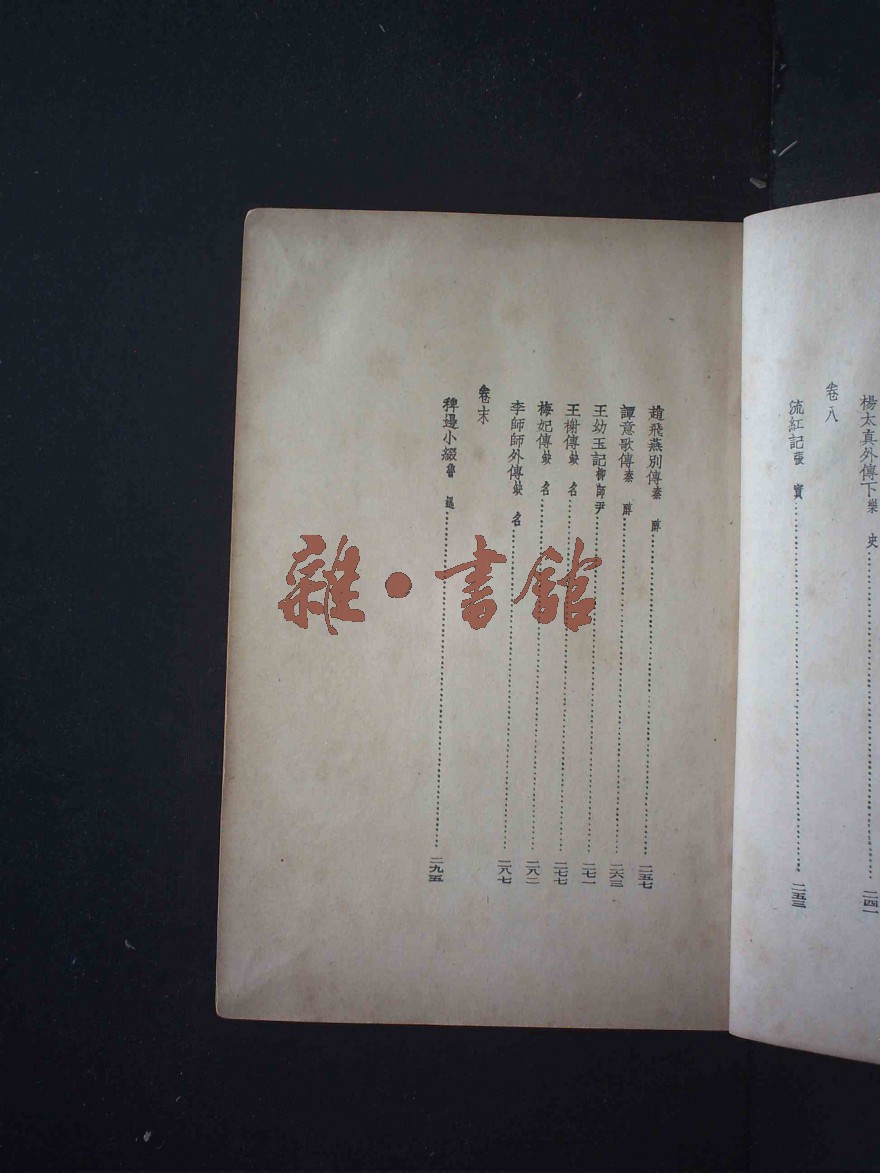 楊太真外傳下 樂史……二四一
卷八
流紅記 張實……二五三
趙飛燕別傳 秦醇……二五七
譚意歌傳 秦醇……二六三
王幼玉記 柳師尹……二七一
王榭傳 缺名……二七七
梅妃傳 缺名……二八一
李師師外傳 缺名……二八七
卷末
稗邊小綴 魯迅……二九五
雜·書館